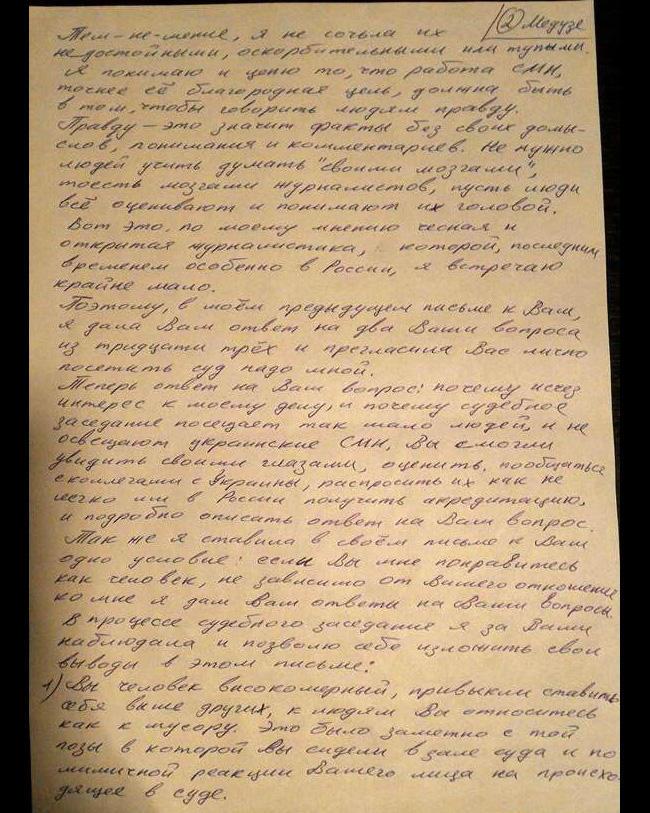 ② Медузе
Тем-не-мение, я не сочьла их
не достойными, оскорбительными или тупыми.
Я понимаю и ценю то, что работа СМИ,
точнее её благородная цель, должна быть
в том, чтобы говорить людям правду.
Правду – это значит факты без своих домы-
слов, понимания и комментариев. Не нужно
людей учить думать "своими мозгами",
тоесть мозгами журналистов, пусть люди
всё оценивают и понимают их головой.
Вот это, по моему мнению чесная и
открытая журналистика, которой, последним
временем особенно в России, я встречаю
крайне мало.
Поэтому, в моём предыдущем письме к Вам,
я дала Вам ответ на два Ваши вопроса
из тридцати трёх и прегласила Вас лично
посетить суд надо мной.
Теперь ответ на Ваш вопрос: почему исчез
интерес к моему делу, и почему судебное
заседание посещает так мало людей, и не
освещают украинские СМИ, Вы смогли
увидить своими глазами, оценить, пообщаться
с коллегами с Украины, распросить их как не
легко им в России получить акредитацию,
и подробно описать ответ на Ваш вопрос.
Так же я ставила в своём письме к Вам
одно условие: если Вы мне понравитесь
как человек, не зависимо от Вашего отношение
ко мне я дам Вам ответы на Ваши вопросы.
В процессе судебного заседание я за Вами
наблюдала и позволю себе изложить свои
выводи в этом письме:
1) Вы человек високомерный, привыкли ставить
себя выше других, к людям Вы относитесь
как к мусору. Это было заметно с той
позы в которой Вы сидели в зале суда и по
мимичной реакции Вашего лица на происхо-
дящее в суде.